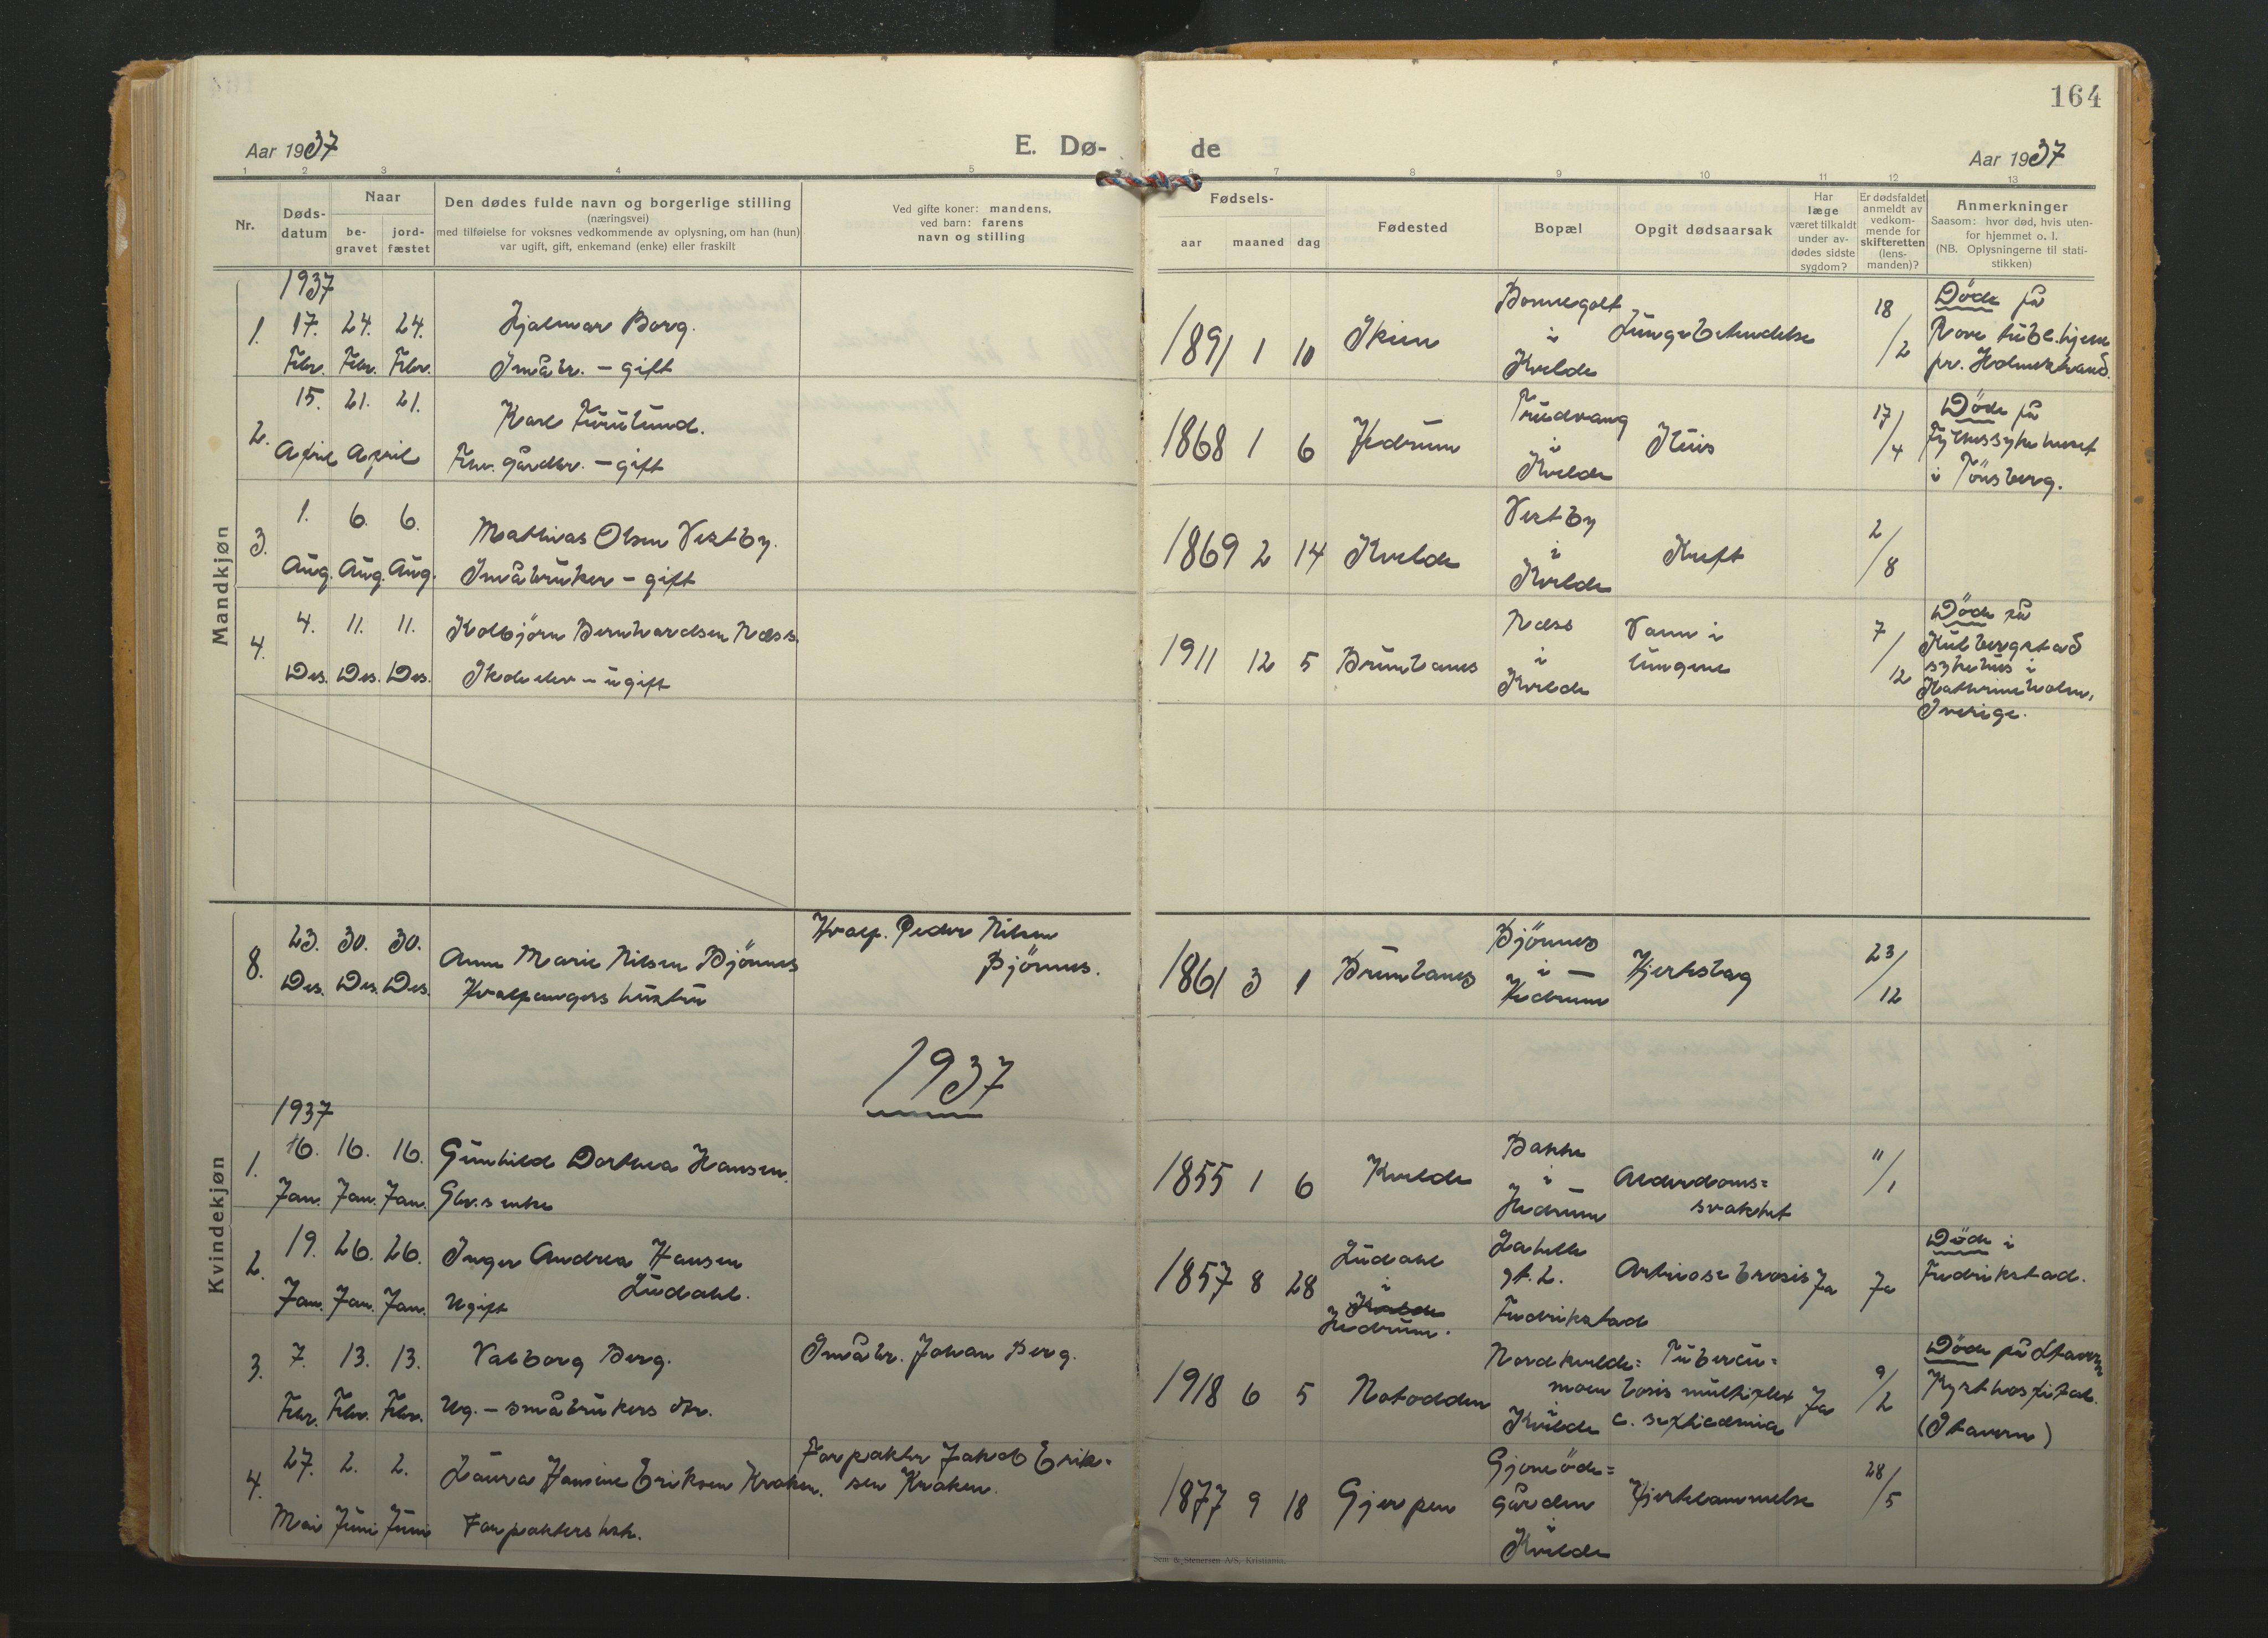 164
Aar 1937
E. Dø-
de
Aar 1937
1 2 3 4 5
7 8 9 10 11 12 13
Nr.
Døds-
datum
Naar
be-
gravet
jord-
fæstet
Den dødes fulde navn og borgerlige stilling
(næringsvei)
med tilføielse for voksnes vedkommende av oplysning, om han (hun)
var ugift, gift, enkemand (enke) eller fraskilt
Ved gifte koner: mandens,
ved barn: farens
navn og stilling
Fødsels-
aar maaned dag
Fødested
Bopæl
Opgit dødsaarsak
Har
læge
været tilkaldt
under av-
dødes sidste
sygdom?
Er dødsfaldet
anmeldt av
vedkom-
mende for
skifteretten
(lens-
manden)?
Anmerkninger
Saasom: hvor død, hvis uten-
for hjemmet o. l.
(NB. Oplysningerne til stati-
stikken)
Mandkjøn
1937
1.
17. 24. 24.
Febr. Febr. Febr.
Hjalmar Borg.
Småbr. – gift
1891 1 10
Skien
Bommegalt
i
Kvelde
Lungebetendelse
18
/2
Döde på
Nove tub.hjem
pr. Holmestrand.
2.
15. 21. 21.
April April
Karl Furulund.
Fhv. gårdbr. – gift
1868 1 6
Hedrum
Trudvang
i
Kvelde
Ileus
17
/4
Döde på
Fylkessykehuset
i Tönsberg.
3.
1. 6. 6.
Aug. Aug. Aug.
Mathias Olsen Vestby.
Småbruker – gift
1869 2 14
Kvelde
Vestby
i
Kvelde
Kreft
2
/8
4.
4. 11. 11.
Des. Des. Des.
Kolbjörn Bernhardsen Næss
Skoleelev – ugift
1911 12 5
Brunlanes
Næss
i
Kvelde
Vann i
lungene
7
/
12
Döde på
Kulbergstad
sykehus i
Kathrineholm,
Sverige.
Kvindekjøn
8.
23. 30. 30.
Des. Des. Des.
Anna Marie Nilsen Bjönnes
Hvalfangers hustru
Hvalf. Peder Nilsen
Bjönnes.
1861 3 1
Brunlanes
Bjönnes
i –
Hedrum
Hjerteslag
23
/
12
1937
1937
1.
16. 16. 16.
Jan. Jan. Jan.
Gunhild Dorthea Hansen.
Gbr.s enke
1855 1 6
Kvelde
Bakke
i
Hedrum
Alderdoms=
svakhet
11
/1
2.
19. 26. 26.
Jan. Jan. Jan.
Inger Andrea Hansen
Lindahl.
Ugift
1857 8 28
Lindahl
i
Kvelde
Hedrum.
gt. 2.
Fredrikstad
Ja
Ja
Döde i
Fredrikstad.
3.
7. 13. 13.
Febr. Febr. Febr.
Valborg Berg.
Ug. – småbrukers dtr.
Småbr. Johan Berg.
1918 6 5
Notodden
Nordkvelde=
moen
i
Kvelde
Tubercu=
losis multiplex
c. septicæmia
Ja
9
/2
Döde på Stavern
Kysthospital.
(Stavern)
4.
27. 2. 2.
Mai Juni Juni
Laura Hansine Eriksen Kraken.
Forpakters hst.
Forpakter Jakob Erik=
sen Kraken.
1877 9 18
Gjerpen
Gjoneöde=
gården
i
Kvelde
Hjertelammelse
28
/5
Sem & Stenersen A/S, Kristiania.